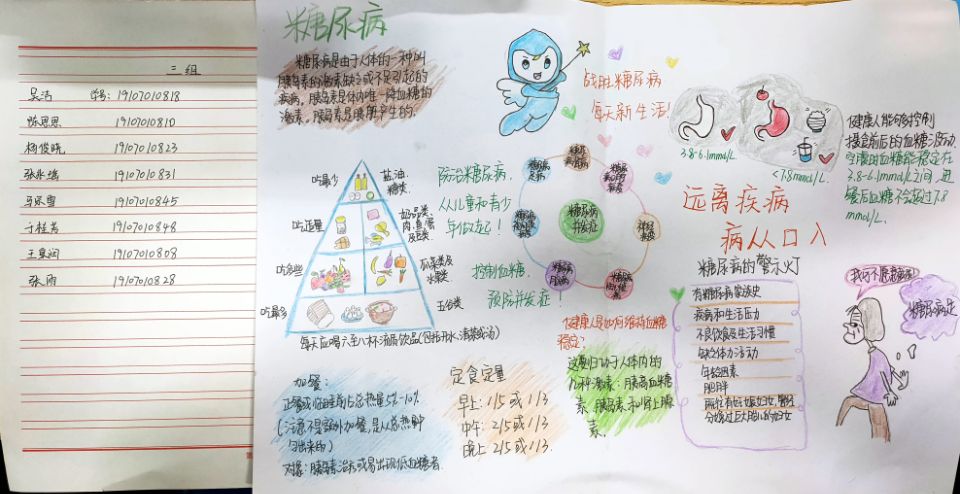 三组
吴洁 学号:19107010818
陈思思 19107010810
杨俊晓 19107010823
19107010831
19107010845
19107010848
19107010808
张雨 19107010828
糖尿病
糖尿病是由于人体的一种叫
胰岛素的激素缺乏或不足引起的
疾病,胰岛素是体内唯一降血糖的
激素,胰岛素是胰脏产生的.
战胜糖尿病
每天新生活!
3.8-6.1mmol/L
<7.8mmol/L
健康人能够控制
摄食前后的血糖活动.
空腹时血糖能稳定在
3.8-6.1mmol/L之间,进
餐后血糖不会超过7.8
mmol/L.
吃最少
盐油、
糖类.
吃适量
奶品类、
肉、鱼、蛋
及豆类
吃多些
瓜菜类及
水果类
吃最多
五谷类
每天应喝六至八杯流质饮品(包括开水、清茶或汤)
防治糖尿病,
从儿童和青少
年做起!
控制血糖,
预防并发症!
糖尿病
并发症
远离疾病
病从口入
糖尿病的警示灯
有糖尿病家族史
疾病和生活压力
不良饮食及生活习惯
缺乏体力活动
年龄因素
肥胖
分娩过巨大胎儿的妇女
糖尿病足
健康人是如何维持血糖
稳定?
这要归功于人体内的
几种激素:胰高血糖
素、胰岛素和肾上腺
素.
加餐:
正餐或临睡前占总热量5%-10%
(注意不是额外加餐,是从总热卡中
匀出来的)
对象:胰岛素治疗或易出现低血糖者.
定食定量
早上:1/5或1/3
中午:2/5或1/3
晚上:2/5或1/3.